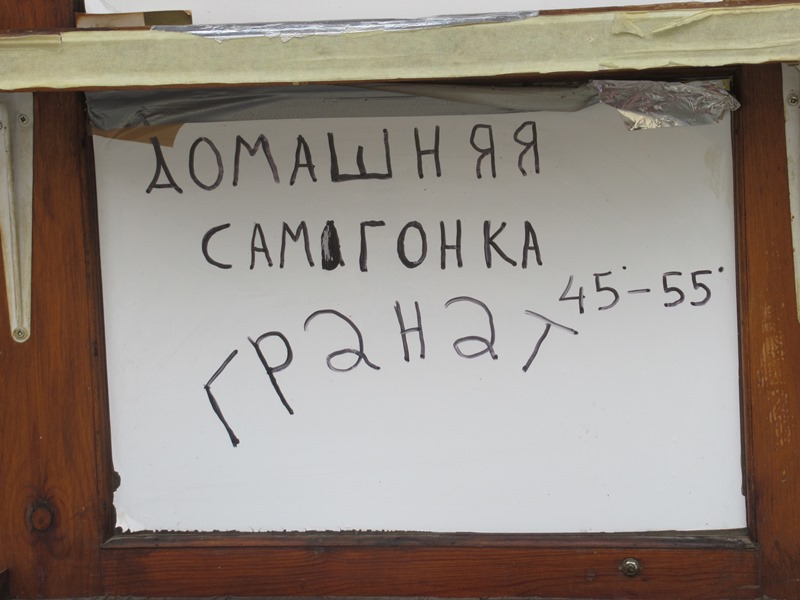 ДОМАШНЯЯ
САМОГОНКА
ГРАНАТ 45°-55°